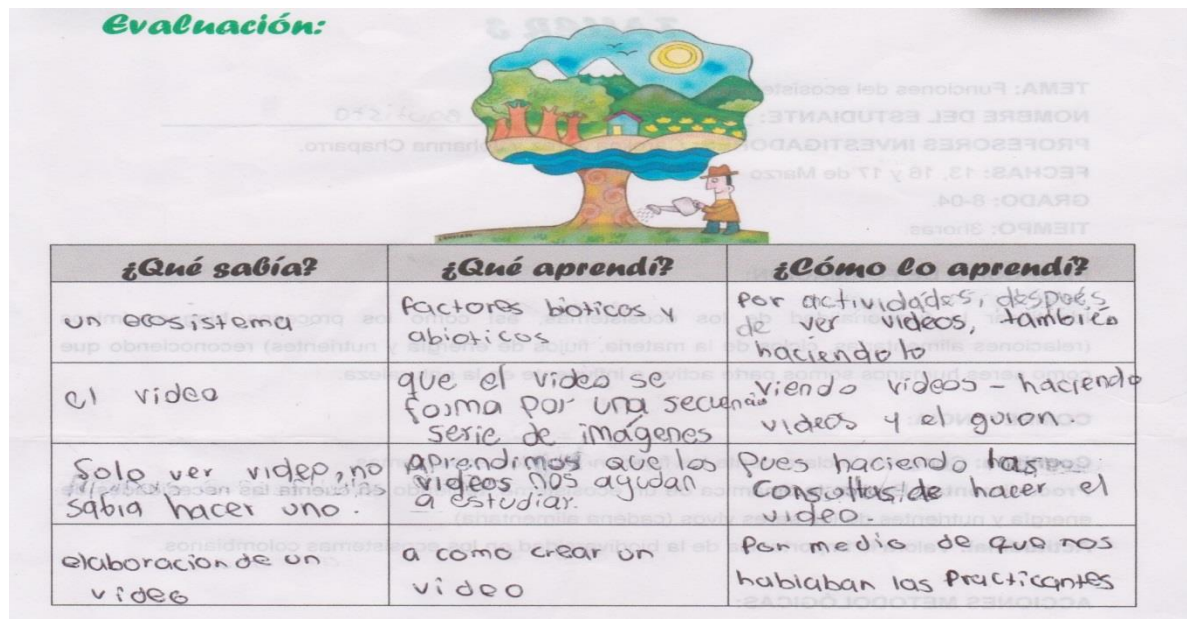 Evaluación:
¿Qué sabía?
¿Qué aprendí?
¿Cómo lo aprendí?
un ecosistema
factores bioticos y
abioticos
Por actividades, después
de ver videos, tambien
haciendolo
el video
que el video se
forma por una secuencia
serie de imágenes
viendo videos - haciendo
videos y el guion.
Solo ver video, no
sabia hacer uno.
aprendimos que los
videos nos ayudan
a estudiar.
Pues haciendo las
consultas, de hacer el
video.
elaboracion de un
video
a como crear un
video
Por medio de que nos
hablaban las Practicantes